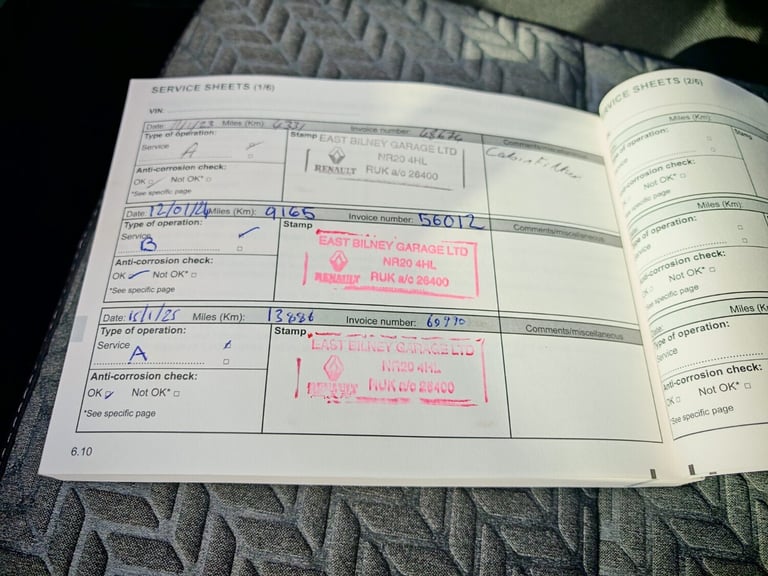 SERVICE SHEETS (1/6)
VIN:
Date: Miles (Km): 6331 Invoice number: 48676
Type of operation:
Service A
Anti-corrosion check:
OK Not OK*
*See specific page
Stamp
EAST BILNEY GARAGE LTD
NR20 4HL
RENAULT RUK a/c 26400
Comments/miscellaneous
Date: 12/01/24 Miles (Km): 9165 Invoice number: 56012
Type of operation:
Service B
Anti-corrosion check:
OK Not OK*
*See specific page
Stamp
EAST BILNEY GARAGE LTD
NR20 4HL
RENAULT RUK a/c 26400
Comments/miscellaneous
Date: 15/1/25 Miles (Km): 13886 Invoice number: 69990
Type of operation:
Service A
Anti-corrosion check:
OK Not OK*
*See specific page
Stamp
EAST BILNEY GARAGE LTD
NR20 4HL
RENAULT RUK a/c 26400
Comments/miscellaneous
6.10
VICE SHEETS (2/6)
Miles (Km):
of operation:
Stamp
corrosion check:
Not OK*
specific page
Miles (Km):
of operation:
Service
Anti-corrosion check:
Not OK*
See specific page
Date: Miles (Km):
Type of operation:
Service
Anti-corrosion check:
OK Not OK*
*See specific page